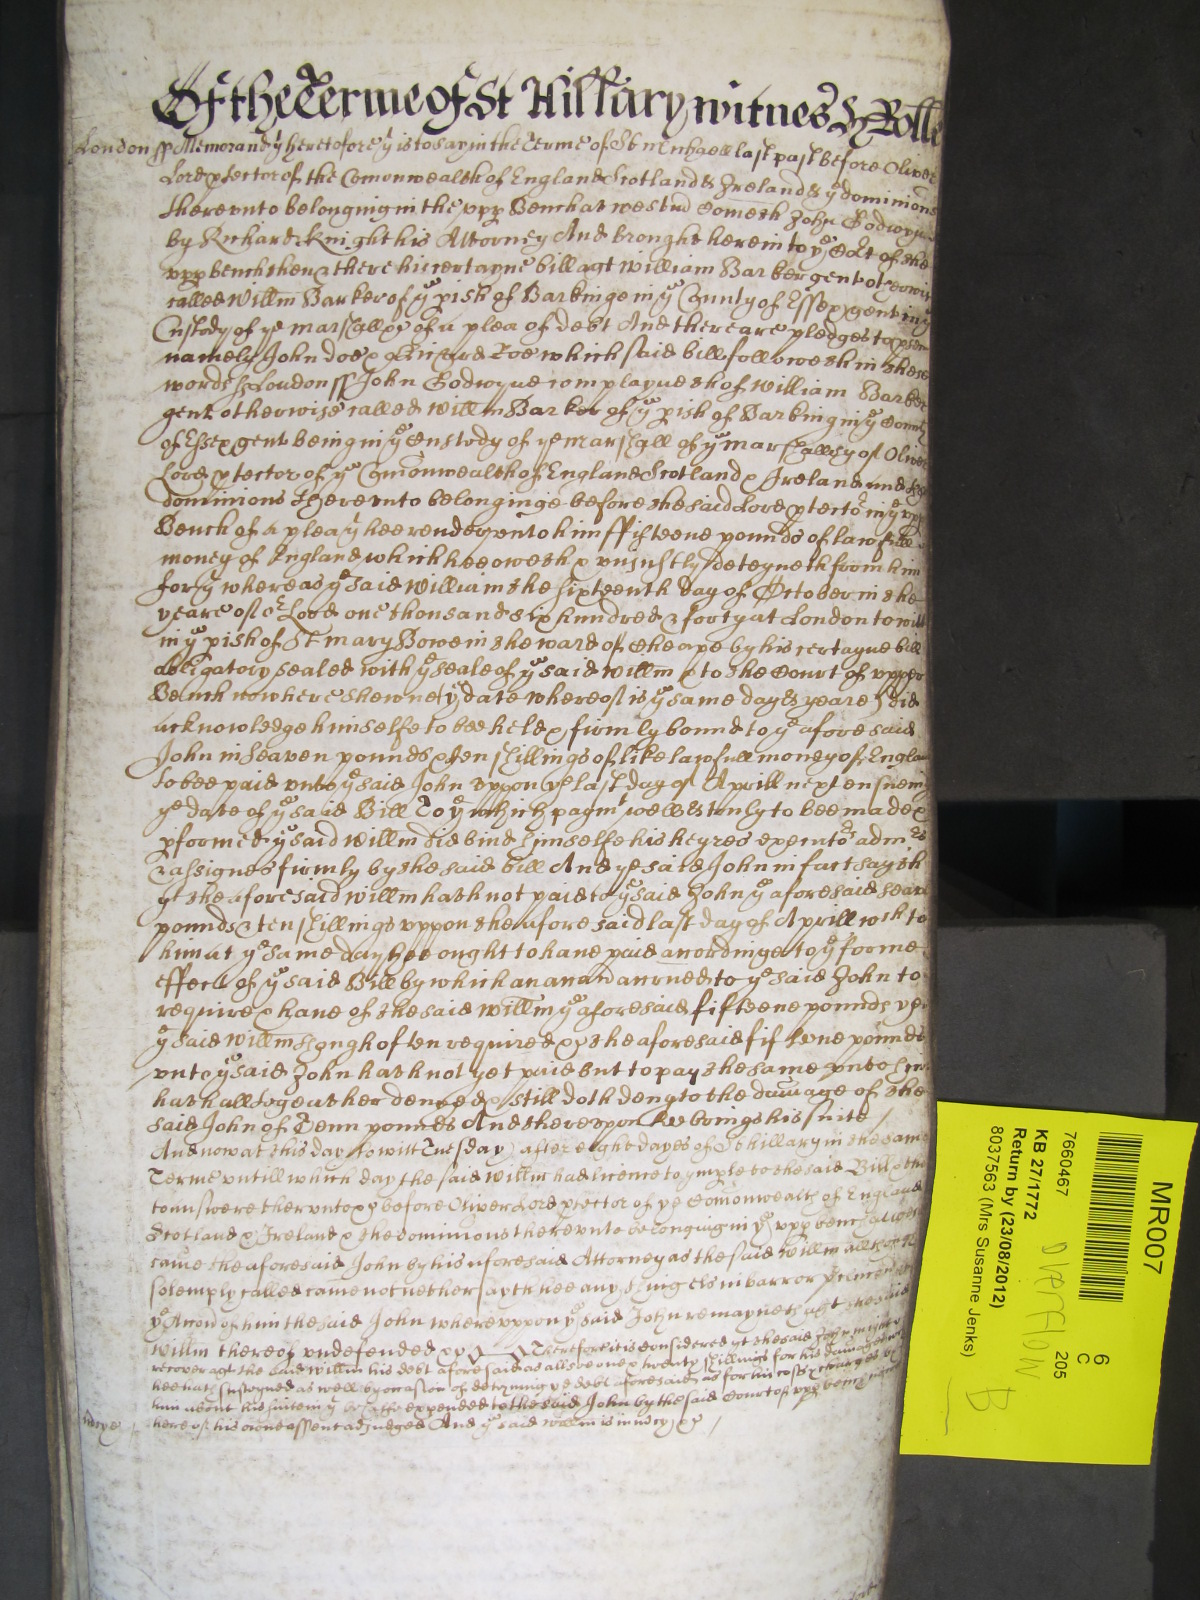 Of the Terme of St Hillary witnes H Rolle
London ss Memorand yt heretofore yt is to say in the Terme of St Michaell last past before Oliver
Lord ptector of the Comonwealth of England Scotland & Ireland & ye dominions
therevnto belonging in the vpp Bench at westmr Cometh John Godwyne
by Richard Knight his Attorney And brought here into ye Cort of the
vpp bench then & there his certayne bill agt William Barker gent otherwise
called Willm Barker of ye pish of Barkinge in ye County of Essex gent in ye
Custody of ye marshall &c of a plea of debt And there are pledges to psente
namely John doe & Richard Roe which said bill followeth in these
words ss London ss John Godwyne complayneth of William Barker
gent otherwise called Willm Barker of ye pish of Barking in ye County
of Essex gent being in ye Custody of ye marshall of ye marshallsy of Oliver
Lord ptector of ye Comonwealth of England Scotland & Ireland and the
dominions therevnto belonginge before the said Lord ptector in ye vpp
Bench of a plea yt hee render vnto him ffifteene pounds of lawfull
money of England which hee oweth & vniustly deteyneth from him
for yt whereas ye said William the sixteenth day of October in the
yeare of or Lord one thousand six hundred & forty at London to witt
in ye pish of St mary Bowe in the ward of Cheape by his certayne bill
obligatory sealed with ye seale of ye said Willm & to the Court of vpper
Bench now here shewne (ye date whereof is ye same day & yeare) did
acknowledge himselfe to bee held & firmly bound to ye aforesaid
John in seaven pounds & ten shillings of like lawfull money of England
to bee paid vnto ye said John vppon ye last day of Aprill next ensueing
ye date of ye said Bill To ye which paymt well & truly to bee made &
pformed ye said Willm did bind himselfe his heyres executors admrs
& assignes firmly by the said bill And ye said John in fact sayth
yt the aforesaid willm hath not paid to ye said John ye aforesaid seaven
pounds & ten shillings vppon the aforesaid last day of Aprill wch to
him at ye same day hee ought to haue paid accordinge to ye forme
effect of ye said Bill by which an accon accrued to ye said John to
require & haue of the said willm ye aforesaid fifteene pounds yet
ye said Willm though often required &c the aforesaid fifteene pounds
vnto ye said John hath not yet paid but to pay the same vnto him
hath alltogeather denyed & still doth deny to the damage of the
said John of Tenn pounds And therevpon hee brings his suite
And now at this day (to witt Tuesday) after eight dayes of St hillary in the same
Terme vntill which day the said Willm had licence to imple to the said Bill & then
to answere therevnto &c before Oliver Lord ptector of ye Comonwealth of England
Scotland & Ireland & the dominions therevnto belonging in ye vpp bench at westmr
came the aforesaid John by his aforesaid Attorney as the said Willm although
solemply called came not nether sayth hee any thing els in barr or
ye Accon of him the said John wherevppon ye said John remayneth agt the said
Willm thereof vndefended &c Therefore it is considered yt the said John
recover agt the said Willm his debt aforesaid as allsoe one & twenty shillings for his damages
hee hath susteyned as well by occasion of deteyning ye debt aforesaid as for his costs & charges by
him about his suite in yt behalfe expended to the said John by the said Court of vpp bench
here of his owne assent adiudged And ye said Willm is in mcy &c
mcye
MR007
6
C
7660467
205
overflow
KB 27/1772
Return by (23/08/2012)
8037563 (Mrs Susanne Jenks)
B